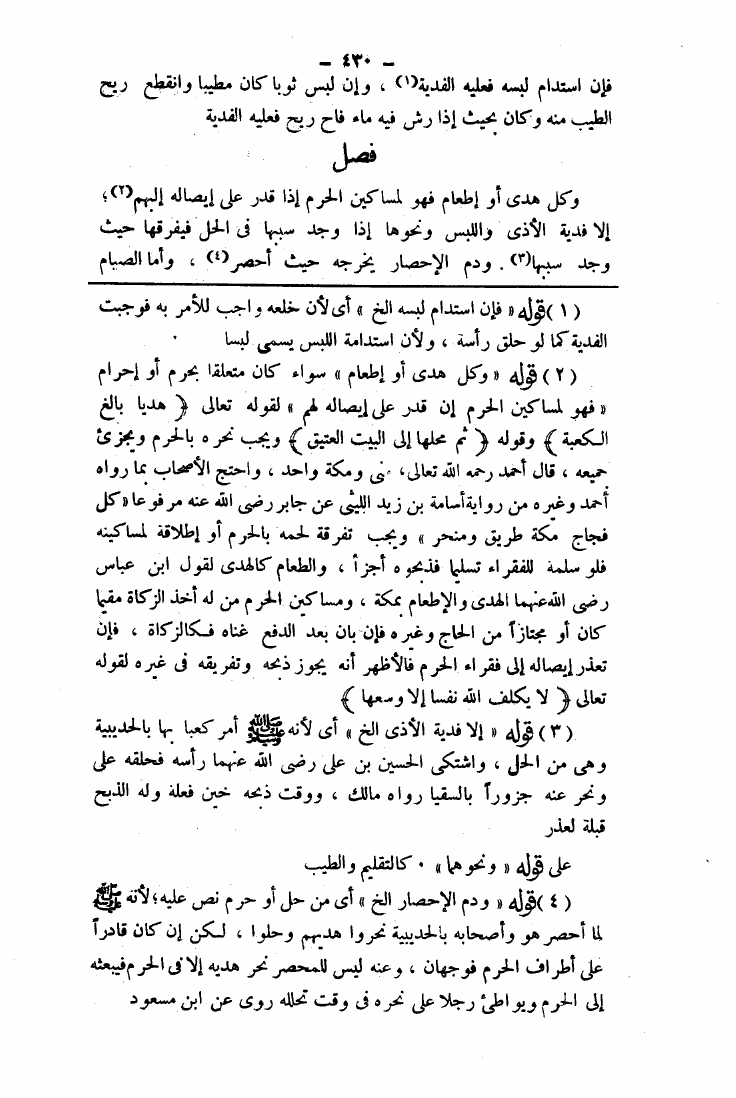 – ٤٣٠ –
فإن استدام لبسه فعليه الفدية(١) ، وإن لبس ثوبا كان مطيبا وانقطع ريح
الطيب منه وكان بحيث إذا رش فيه ماء فاح ريح فعليه الفدية
فصل
وكل هدى أو إطعام فهو لمساكين الحرم إذا قدر على إيصاله إليهم(٢)؛
إلا فدية الأذى واللبس ونحوها إذا وجد سببها فى الحل فيفرقها حيث
وجد سببها(٣) . ودم الإحصار يخرجه حيث أحصر(٤) ، وأما الصيام
(١) قوله « فإن استدام لبسه الخ » أى لأن خلعه واجب للأمر به فوجبت
الفدية كما لو حلق رأسة ، ولأن استدامة اللبس يسمى لبسا
(٢) قوله « وكل هدى أو إطعام » سواء كان متعلقا بحرم أو إحرام
« فهو لمساكين الحرم إن قدر على إيصاله لهم » لقوله تعالى ﴿ هديا بالغ
الكعبة ﴾ وقوله ﴿ ثم محلها إلى البيت العتيق ﴾ ويجب نحره بالحرم ويجزئ
جميعه ، قال أحمد رحمه الله تعالى، منى ومكة واحد ، واحتج الأصحاب بما رواه
أحمد وغيره من رواية أسامة بن زيد الليثى عن جابر رضى الله عنه مرفوعا « كل
فجاج مكة طريق ومنحر » ويجب تفرقة لحمه بالحرم أو إطلاقة لمساكينه
فلو سلمه للفقراء تسليما فذبحوه أجزأ ، والطعام كالهدى لقول ابن عباس
رضى الله عنهما الهدى والإطعام بمكة ، ومساكين الحرم من له أخذ الزكاة مقيما
كان أو مجتازاً من الحاج وغيره فإن بان بعد الدفع غناه فكالزكاة ، فإن
تعذر إيصاله إلى فقراء الحرم فالأظهر أنه يجوز ذبحه وتفريقه فى غيره لقوله
تعالى ﴿ لا يكلف الله نفسا إلا وسعها ﴾
(٣) قوله « إلا فدية الأذى الخ » أى لأنه ﷺ أمر كعبا بها بالحديبية
وهى من الحل ، واشتكى الحسين بن على رضى الله عنهما رأسه فحلقه على
ونحر عنه جزوراً بالسقيا رواه مالك ، ووقت ذبحه حين فعله وله الذبح
قبلة لعذر
على قوله « ونحوهما » ٠ كالتقليم والطيب
(٤) قوله « ودم الإحصار الخ » أى من حل أو حرم نص عليه؛ لأنه ﷺ
لما أحصر هو وأصحابه بالحديبية نحروا هديهم وحلوا ، لكن إن كان قادراً
على أطراف الحرم فوجهان ، وعنه ليس للمحصر نحر هديه إلا فى الحرم فيبعثه
إلى الحرم ويواطئ رجلا على نحره فى وقت تحلله روى عن ابن مسعود